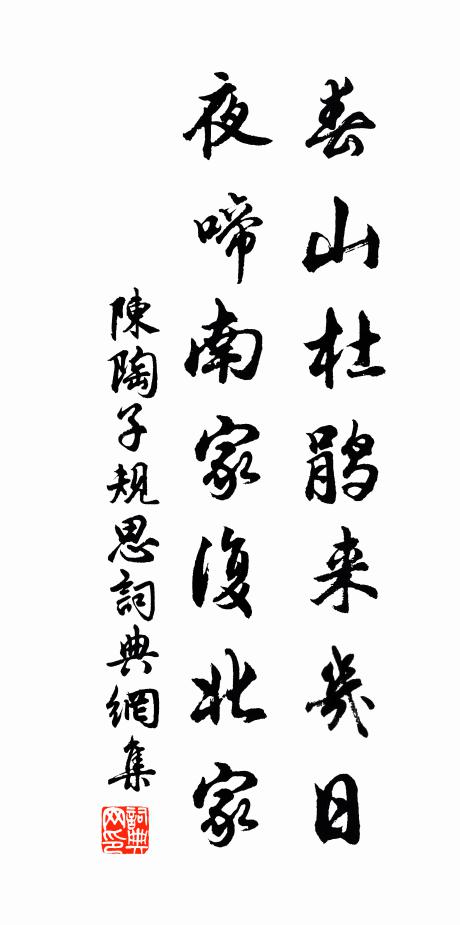 春山杜鵑来幾日
夜啼南家復北家
陳陶子規思詞典網集
詞典网印